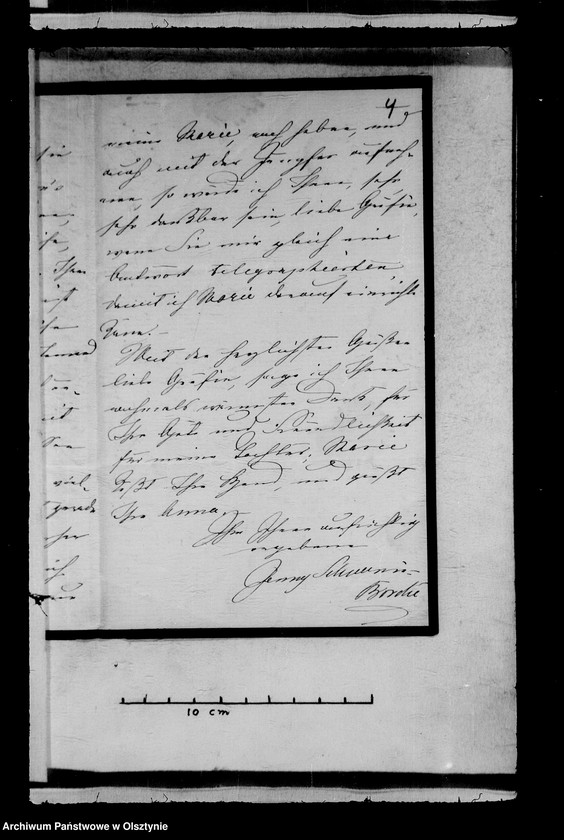 4
meine Marie, auch haben, und
auch mit der Jungfer aufneh-
men, so würde ich Ihnen, sehr,
sehr dankbar sein, liebe Gräfin,
wenn Sie mir gleich eine
Antwort telegraphierten,
damit ich Marie darauf einrichte
kann.-
Mit den herzlichsten Grüßen
liebe Gräfin, sage ich Ihnen
nochmals wärmsten Dank, für
Ihre Güte und Freundlichkeit
für meine Tochter; Marie
küßt Ihre Hand, und grüßt
Ihre Anna.
Ihre Ihnen aufrichtig
ergebene
Jenny
sie
Ihnen
ist
mit
viel-
gerade
ich
10 cm
Archiwum Państwowe w Olsztynie